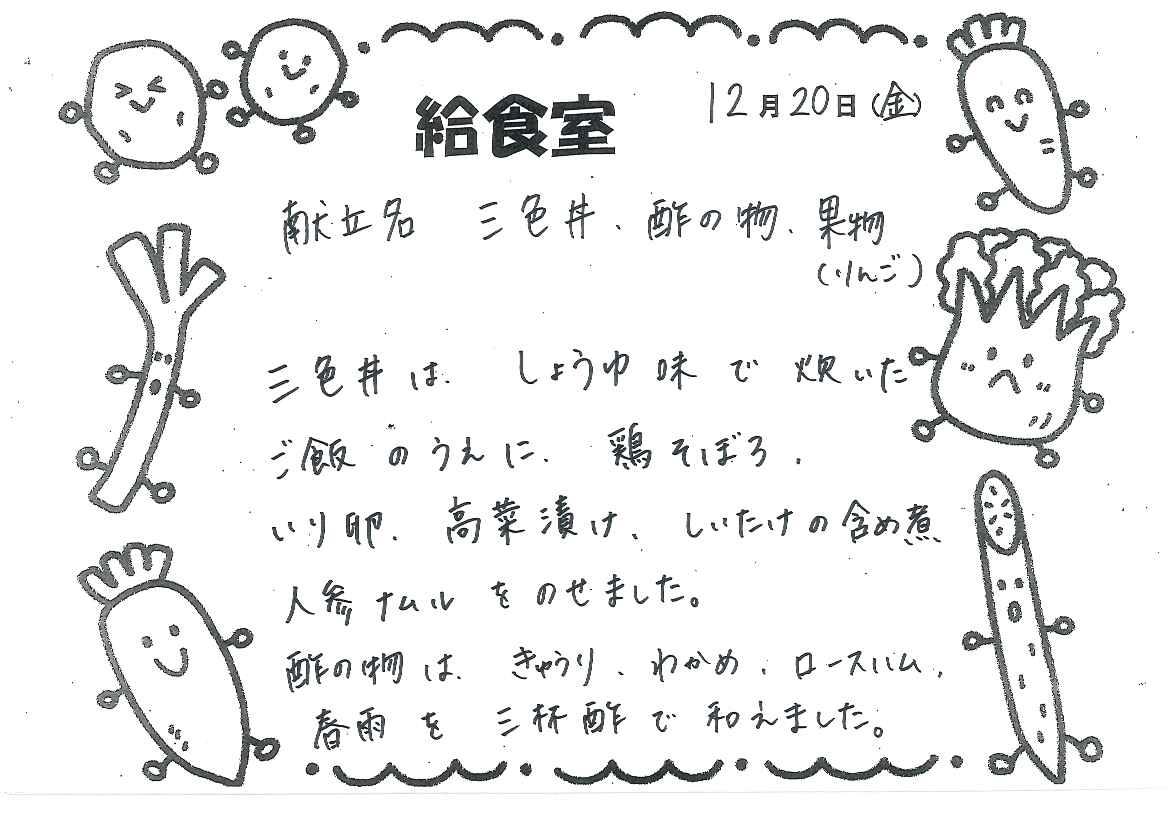 給食室
12月20日(金)
献立名 三色丼、酢の物、果物
(りんご)
三色丼は、しょうゆ味で炊いた
ご飯のうえに、鶏そぼろ、
いり卵、高菜漬け、しいたけの含め煮
人参ナムルをのせました。
酢の物は、きゅうり、わかめ、ロースハム、
春雨を三杯酢で和えました。